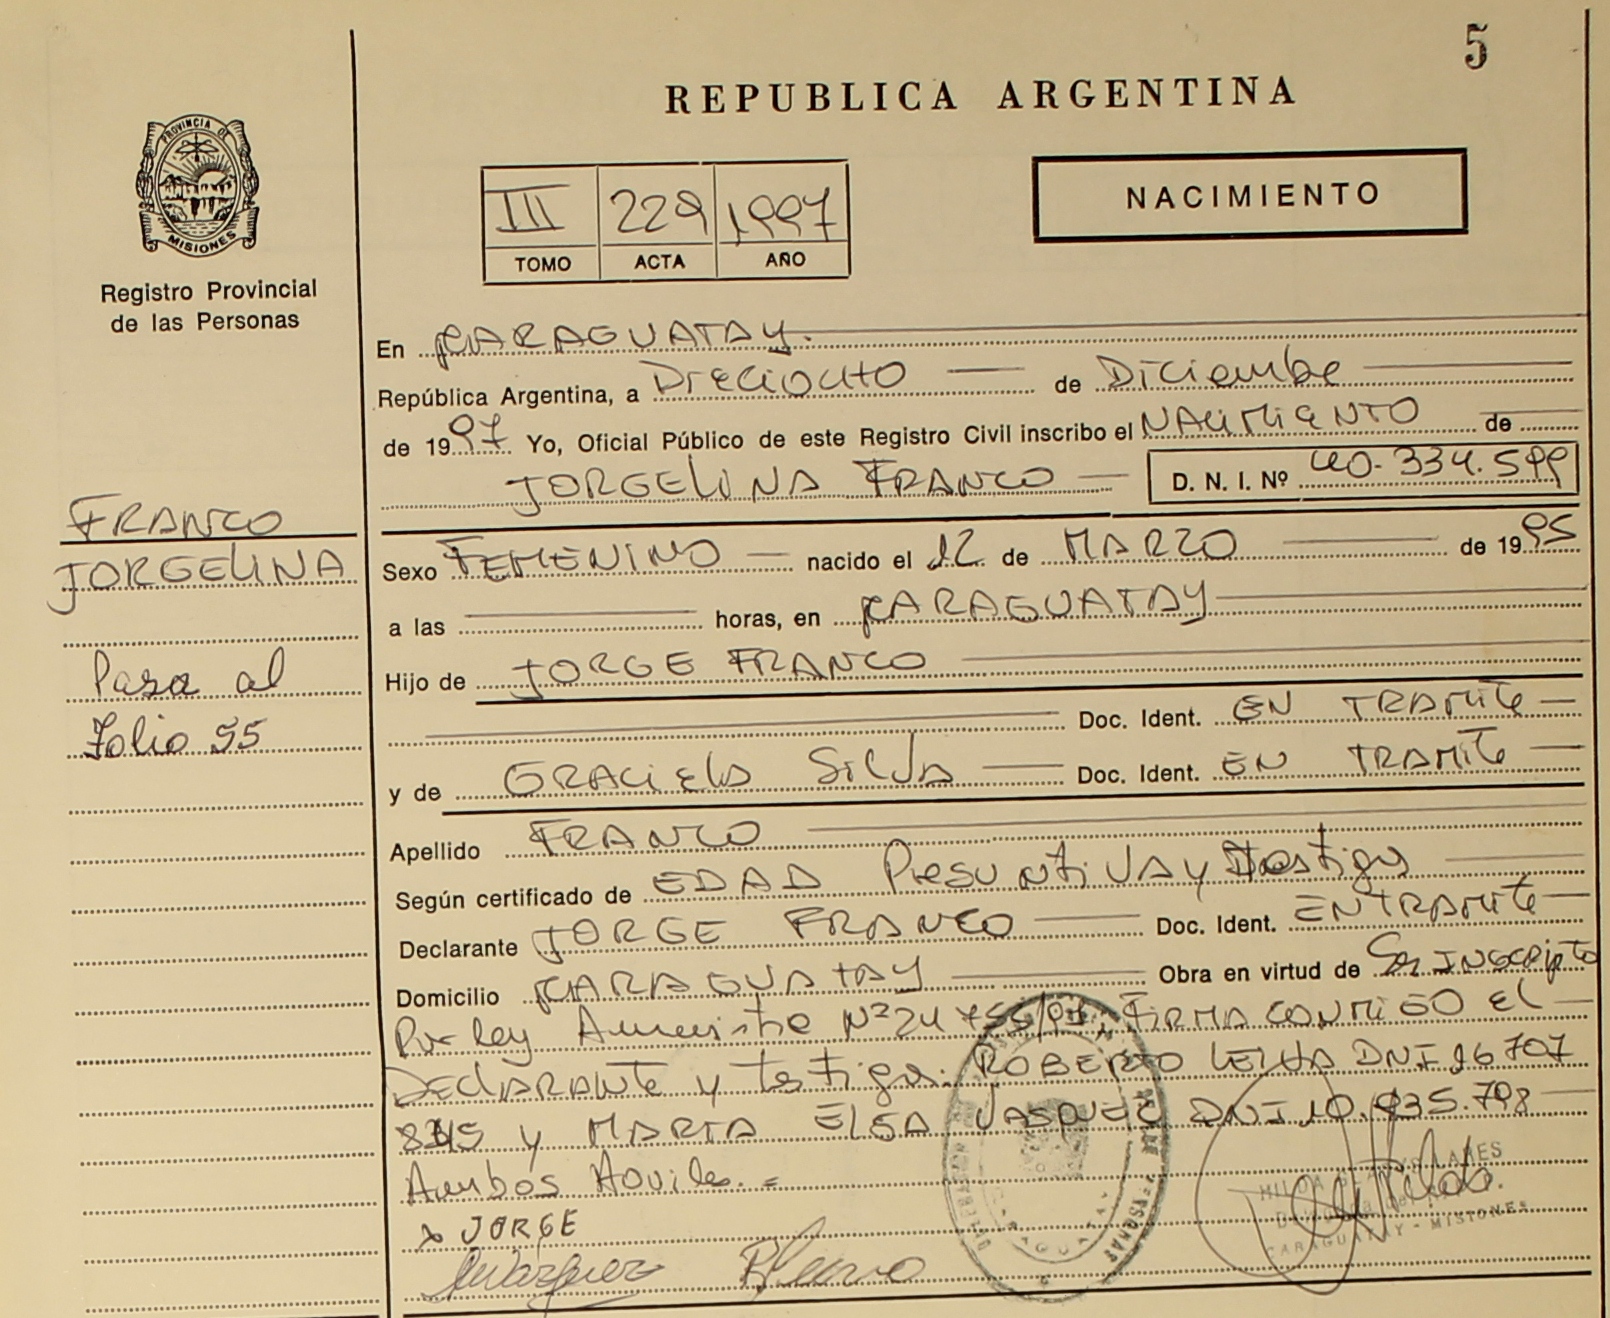 5
REPUBLICA ARGENTINA
PROVINCIA DE
MISIONES
Registro Provincial
de las Personas
NACIMIENTO
III 229 1997
TOMO ACTA AÑO
En CARAGUATAY.
República Argentina, a Dieciocho de Diciembre
de 1997 Yo, Oficial Público de este Registro Civil inscribo el NACIMIENTO de
JORGELINA FRANCO D. N. I. Nº 40.334.599
FRANCO
JORGELINA
Pasa al
Folio 55
Sexo FEMENINO nacido el 12 de MARZO de 1995
a las horas, en CARAGUATAY
Hijo de JORGE FRANCO
Doc. Ident. EN TRAMITE
y de GRACIELA SILVA Doc. Ident. EN TRAMITE
Apellido FRANCO
Según certificado de EDAD Presuntiva y testigos
Declarante JORGE FRANCO Doc. Ident. EN TRAMITE
Domicilio CARAGUATAY Obra en virtud de Ser INSCRIPTO
Por ley Amnistia Nº 24 755/97, FIRMA CONMIGO EL
DECLARANTE y testigos. ROBERTO DNI 16 707
y MARTA ELSA VASQUEZ DNI 10.935.798
Ambos Hábiles. =
x JORGE
MVázquez
CARAGUATAY - MISIONES